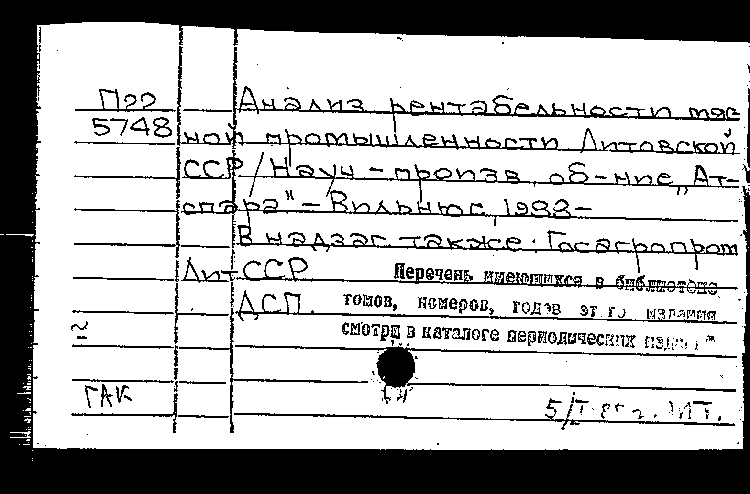 П22 Анализ рентабельности мяс-
5748 ной промышленности Литовской
ССР / Науч-произв. об-ние „Ат-
спара" – Вильнюс, 1988–
В надзаг. также: Госагропром
ЛитССР
Перечень имеющихся в библиотеке
ДСП. томов, номеров, годов этого издания
смотри в каталоге периодических
ГАК
5/I